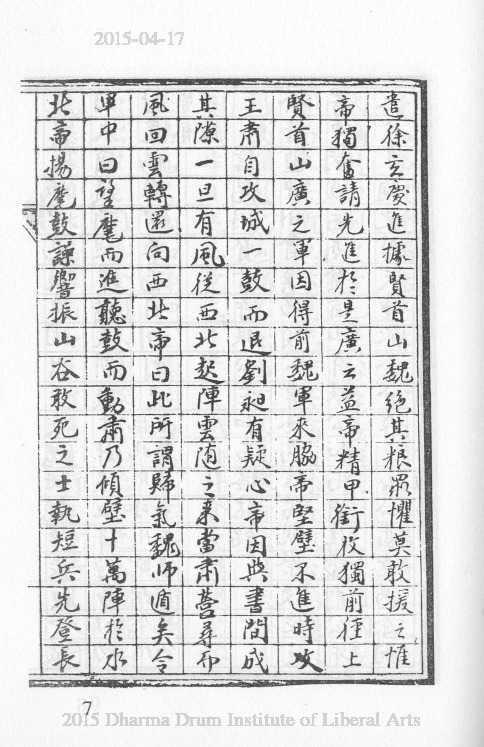 2015-04-17
遣徐玄慶進據賢首山魏絕其粮眾懼莫敢援之惟
帝獨奮請先進於是廣之益帝精甲銜枚獨前徑上
賢首山廣之軍因得前魏軍來脇帝堅壁不進時攻
王肅自攻城一鼓而退劉昶有疑心帝因與書間成
其隙一旦有風從西北起陣雲随之来當肅營尋而
風回雲轉還向西北帝曰此所謂歸氣魏师遁矣令
軍中曰望麾而進聽鼓而動肅乃傾壁十萬陣於水
北帝揚麾鼓譟響振山谷敢死之士執短兵先登長
7
2015 Dharma Drum Institute of Liberal Arts